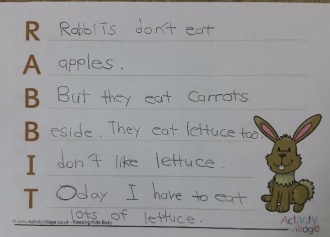 R RabbiTs don't eat
A apples.
B But they eat Carrots
B eside. They eat lettuce too.
I don't like lettuce.
T Oday I have to eat
lots of lettuce.
© www.ActivityVillage.co.uk - Keeping Kids Busy
Activity Village